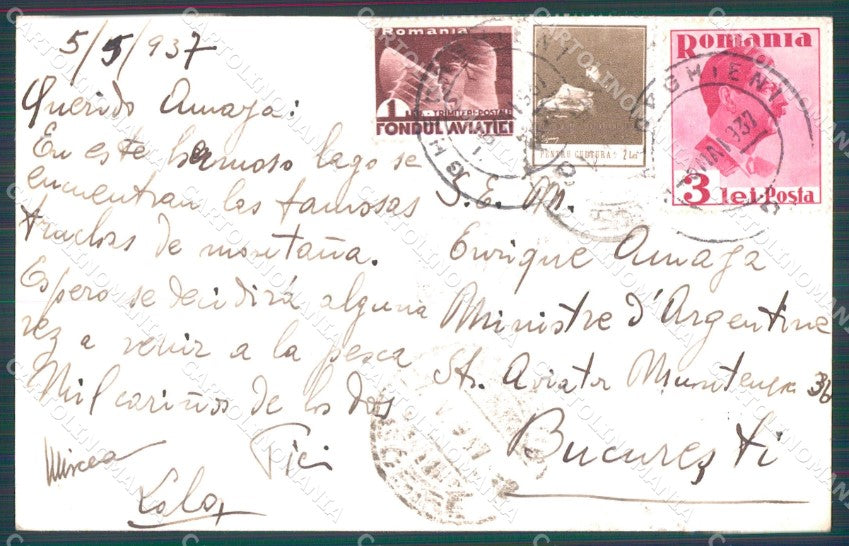 5/5/937
Querido Amaya:
En este hermoso lago se
encuentran las famosas
truchas de montaña.
Espero se decidirá alguna
vez a venir a la pesca
Mil cariños de los dos
Mircea
Lola
S.E. Mr.
Enrique Amaya
Ministre d'Argentine
Str. Aviator Munteanu 36
Bucureşti
Romania
1 LEU - TRIMITERI POSTALE
FONDUL AVIAŢIEI
PENTRU CULTURA 2 Lei
Romania
3 lei Posta
GHIENI
CARTOLINOMANIA